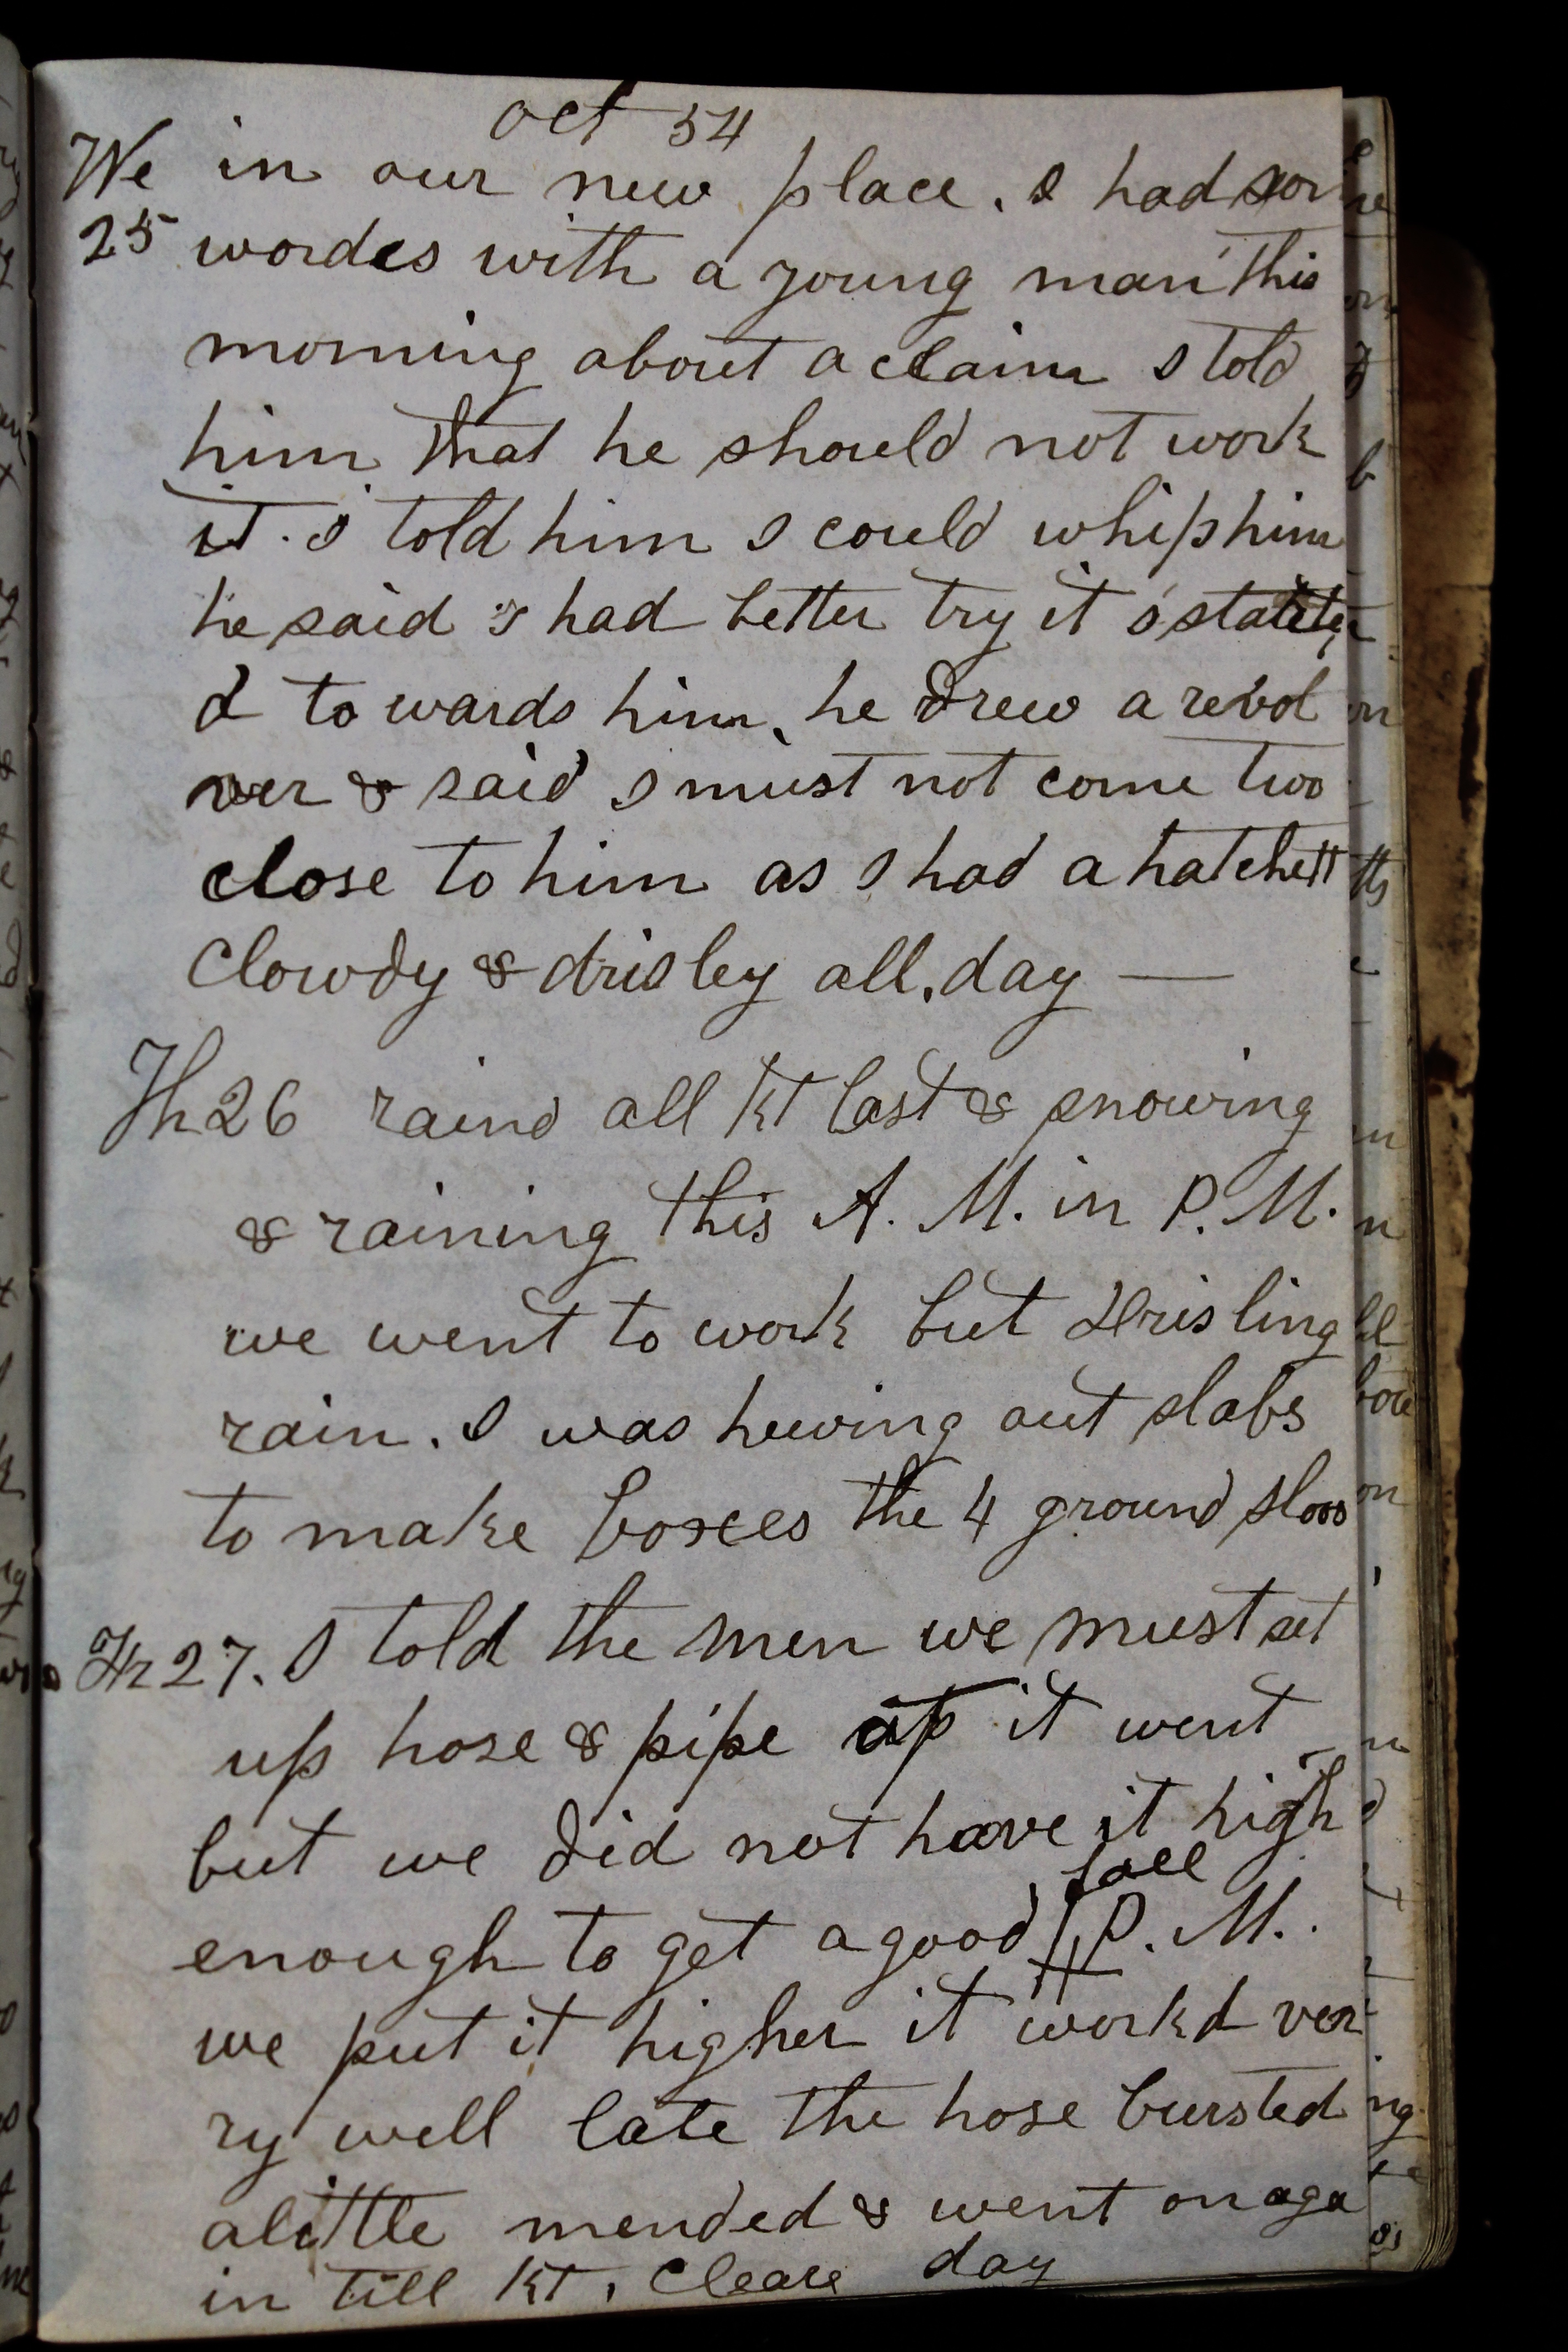 Oct 54
We in our new place. I had som
25 wordes with a young man this
morning about a claim I told
him that he should not work
it. I told him I could whip him
he said I had better try it I
d to wards him, he drew a revol
ver & said I must not come two
close to him as I had a hatchett
Clowdy & drisley all day —
Th 26 raind all kt last & snowing
& raining this A. M. in P. M.
we went to work but drisling
rain. I was hewing out slabs
to make boxces the 4 ground sloos
Fr 27. I told the men we must set
up hose & pipe up it went
but we did not have it high
fall
enough to get a good P. M.
we put it higher it workd ver
ry well late the hose bursted
alittle mended & went on aga
in till kt. Cleare day